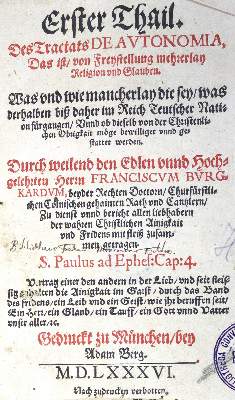 Erster Thail.
Des Tractats DE AVTONOMIA,
Das ist/ von Freystellung mehrerlay
Religion vnd Glauben.
Was vnd wie mancherlay die sey/ was
derhalben biß daher im Reich Teutscher Nati-
on fürgangen/ Vnnd ob dieselb von der Christenli-
chen Obrigkait möge bewilliget vnnd ge-
stattet werden.
Durch weilend den Edlen vnnd Hoch-
gelehrten Herrn FRANCISCVM BVRG-
KARDVM, beyder Rechten Doctorn/ Churfürstli-
chen Cölnischen gehaimen Rath vnd Cantzlern/
Zu dienst vnnd bericht allen liebhabern
der wahren Christlichen Ainigkait
vnd Fridens mit fleiß zusam-
men getragen.
S. Paulus ad Ephes: Cap: 4.
Vertrag einer den andern in der Lieb/ vnd seit fleis-
sig zuhalten die Ainigkait im Gaist/ durch das Band
des fridens/ ein Leib vnd ein Geist/ wie jhr beruffen seit/
Ein Herr/ ein Glaub/ ein Tauff/ ein Gott vnnd Vatter
vnser aller/ &c.
Gedruckt zu München/ bey
Adam Berg.
M.D.LXXXVI.
Nach zudrucken verbotten.